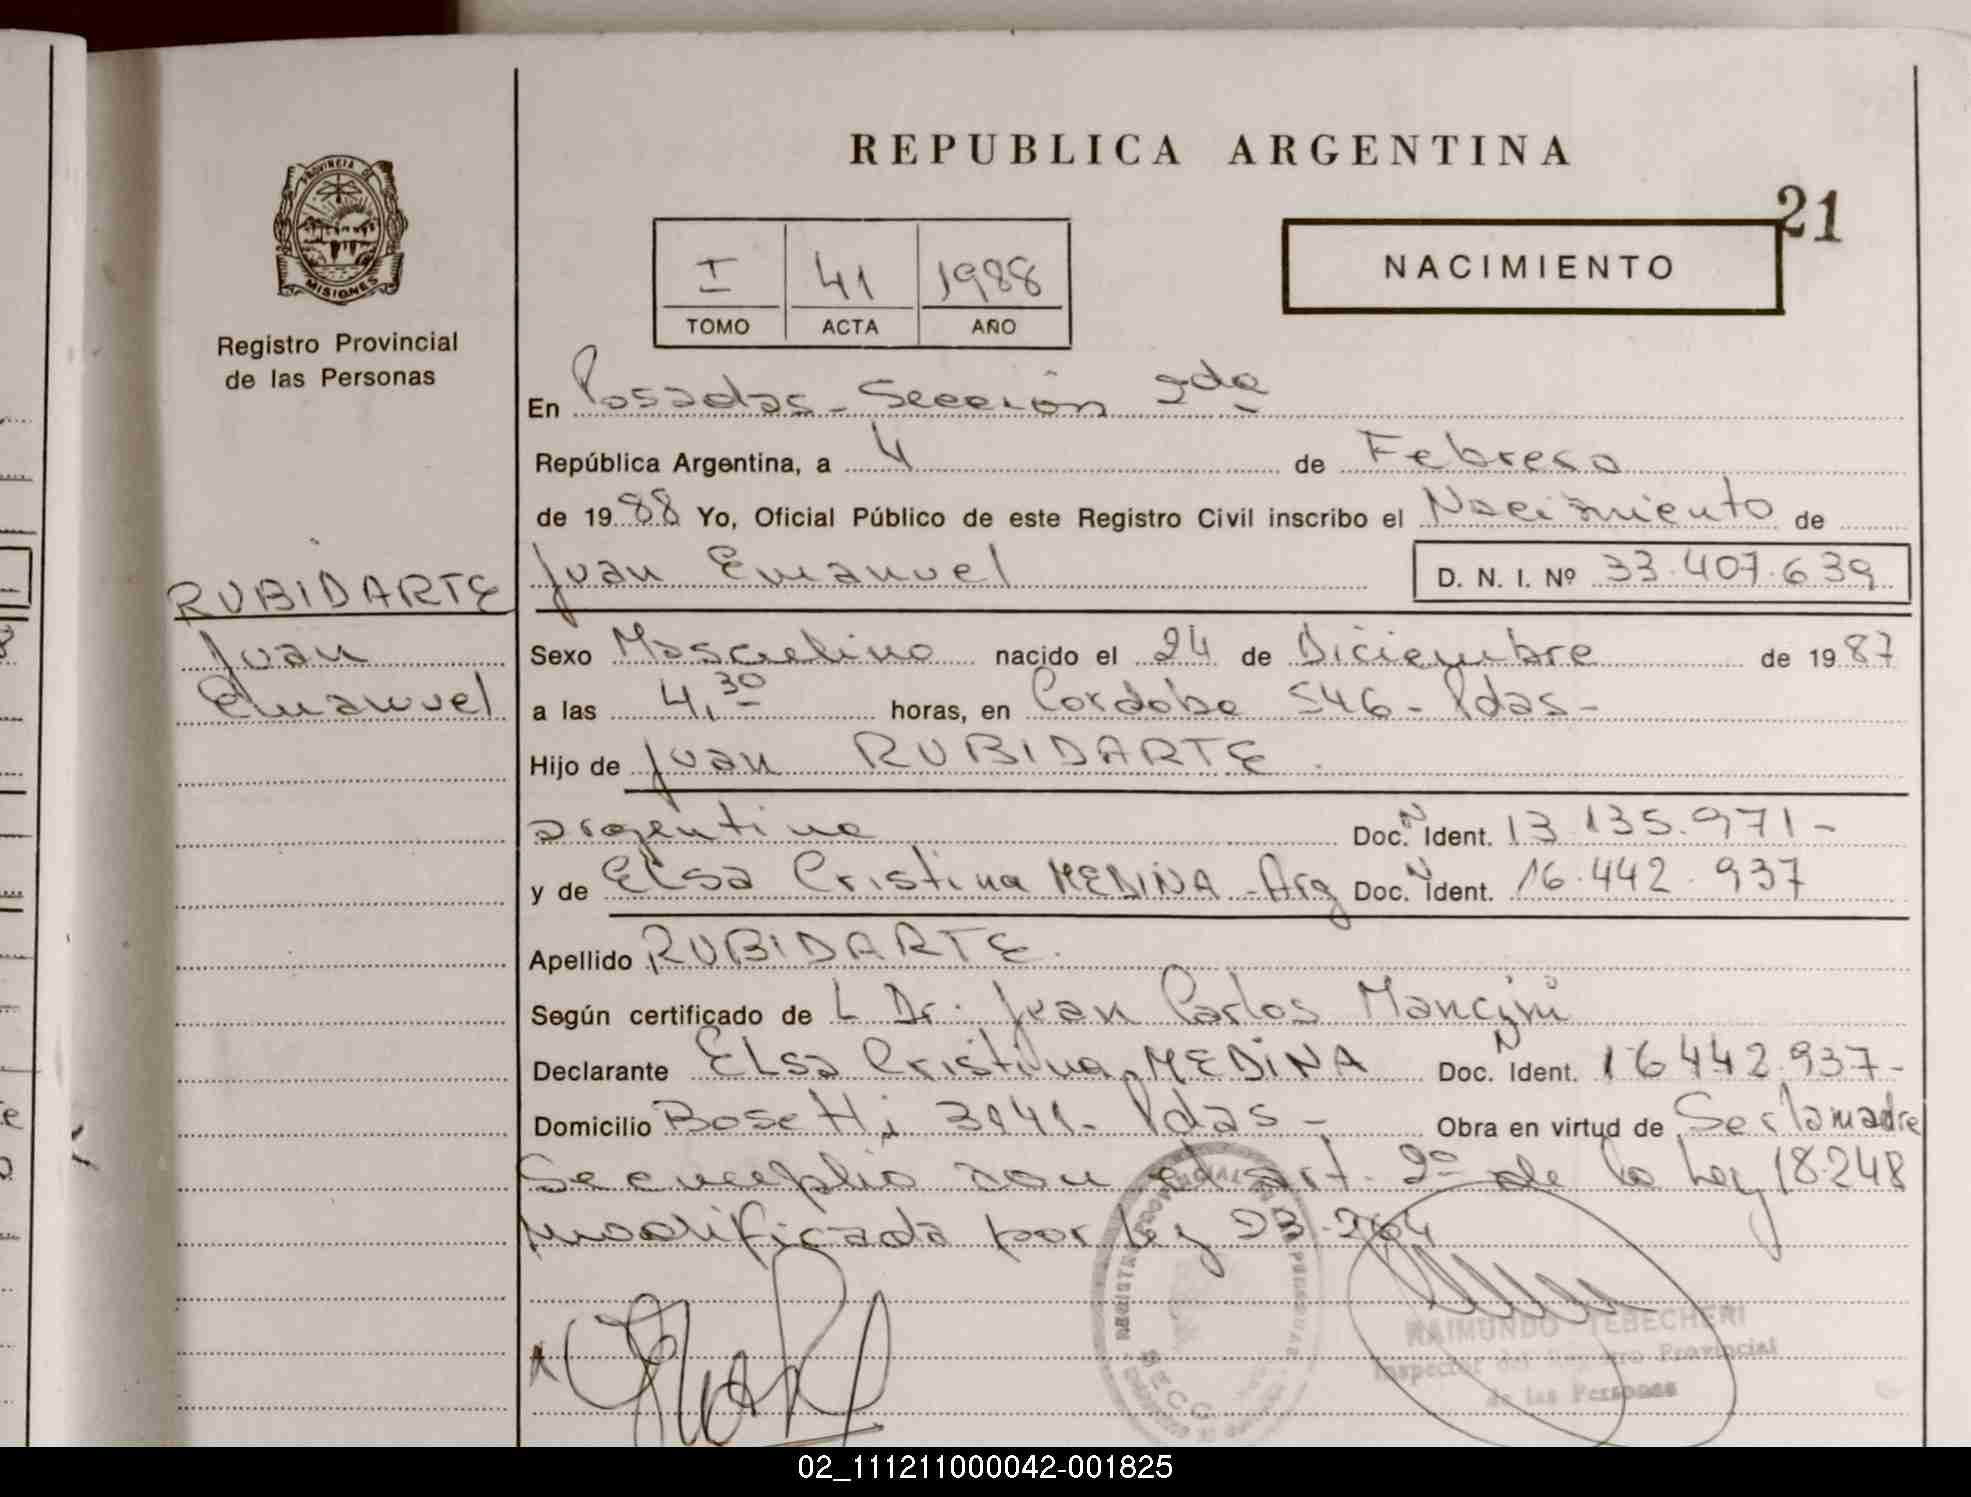 REPUBLICA ARGENTINA
21
PROVINCIA DE
MISIONES
Registro Provincial
de las Personas
I 41 1988
TOMO ACTA AÑO
NACIMIENTO
En Posadas - Sección 2da
República Argentina, a 4 de Febrero
de 1988 Yo, Oficial Público de este Registro Civil inscribo el Nacimiento de
Juan Emanuel D. N. I. Nº 33.407.639
RUBIDARTE
Juan
Emanuel
Sexo Masculino nacido el 24 de Diciembre de 1987
a las 4,30 horas, en Cordoba 546 - Pdas -
Hijo de Juan RUBIDARTE
argentino Doc. N Ident. 13.135.971 -
y de Elsa Cristina MEDINA - Arg Doc. N Ident. 16.442.937
Apellido RUBIDARTE
Según certificado de L Dr. Juan Carlos Mancini
Declarante Elsa Cristina MEDINA Doc. N Ident. 16.442.937 -
Domicilio Bosetti 3141 - Pdas - Obra en virtud de Ser la madre
Se cumplió con el art. 2º de la Ley 18.248
modificada por Ley 23.264
RAIMUNDO TEBECHERI
Inspector del Registro Provincial
de las Personas
02_111211000042-001825